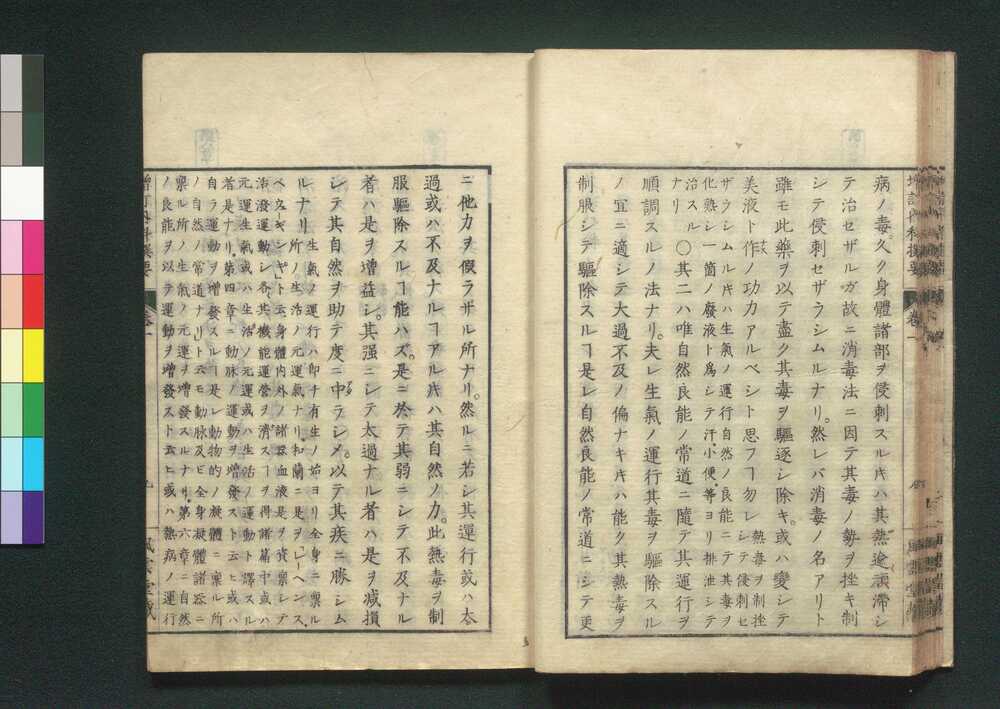 病ノ毒久ク身體諸部ヲ侵刺スルキハ其熱逾 滯シ
テ治セザルガ故ニ消毒法ニ因テ其毒ノ勢ヲ挫キ制
シテ侵刺セザラシムルナリ。然レバ消毒ノ名アリト
雖モ此藥ヲ以テ盡ク其毒ヲ驅逐シ除キ。或ハ變シテ
美液ト作ノ功力アルベシト思フヿ勿レ
熱毒ヲ制挫
シテ侵刺セ
ザラシムルキハ生氣ノ運行自然ノ良能ニテ其毒ヲ
化熟シ一箇ノ廢液ト爲シテ汗。小便。等ヨリ排泄シテ
治スル
ナリ
〇其二ハ唯自然良能ノ常道ニ隨テ其運行ヲ
順調スルノ法ナリ。夫レ生氣ノ運行其毒ヲ驅除スル
ノ冝ニ適シテ大過不及ノ偏ナキキハ能ク其熱毒ヲ
制服シテ驅除スルヿ是レ自然良能ノ常道ニシテ更
ニ他力ヲ假ラザル所ナリ。然ルニ若シ其運行或ハ太
過或ハ不及ナルヿアルキハ其自然ノ力。此熱毒ヲ制
服驅除スルヿ能ハズ。是ニ於テ其弱ニシテ不及ナル
者ハ是ヲ增益シ。其强ニシテ太過ナル者ハ是ヲ减損
シテ其自然ヲ助テ度ニ中ラシメ。以テ其疾ニ勝シム
ルナリ
生氣ノ運行ハ即チ有生ノ始ヨリ全身ニ禀ル
所ノ生活ノ元運氣ナリ。和蘭ニ是ヲ「レーヘンス。
ベウーギンギ」ト云身體内外ノ諸器血液是ヲ資禀シテ
活潑運動シ各其機能運營ヲ消スヿヲ得諸篇中或ハ
元運生氣或ハ生活ノ元運或ハ生活ノ運動ト譯スル
者是ナリ。第四章ニ動脉ノ運動ヲ增發スト云ヒ或ハ
自ラ運動ヲ增發スルヿ是レ動物的ノ凝體ニ禀ル所
ノ自然ノ常道ナリト云モ動脉及ビ全身凝體諸器ニ
禀ル所ノ生氣ノ元運ヲ增發スルナリ。第六章ニ自然
ノ良能ヲ以テ運動ヲ增發スト云ヒ或ハ熱病ノ運行